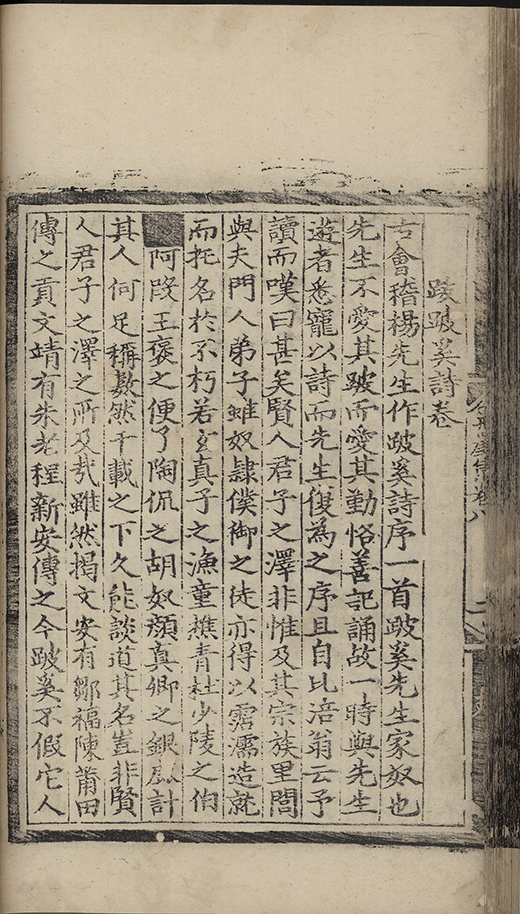 跋跛奚詩卷
古會稽楊先生作跛奚詩序一首跛奚先生家奴也
先生不愛其跛而愛其勤恪善記誦故一時與先生
遊者悉寵以詩而先生復為之序且自比涪翁云予
讀而嘆曰甚矣賢人君子之澤非惟及其宗族里閭
與夫門人弟子雖奴隸僕御之徒亦得以霑濡造就
而托名於不朽若玄真子之漁童樵青杜少陵之伯
阿段王褒之便了陶侃之胡奴顏真卿之銀鹿計
其人何足稱數然千載之下久能談道其名豈非賢
人君子之澤之所及哉雖然揭文安有鄒福陳莆田
傳之貢文靖有朱老程新安傳之今跛奚不假它人